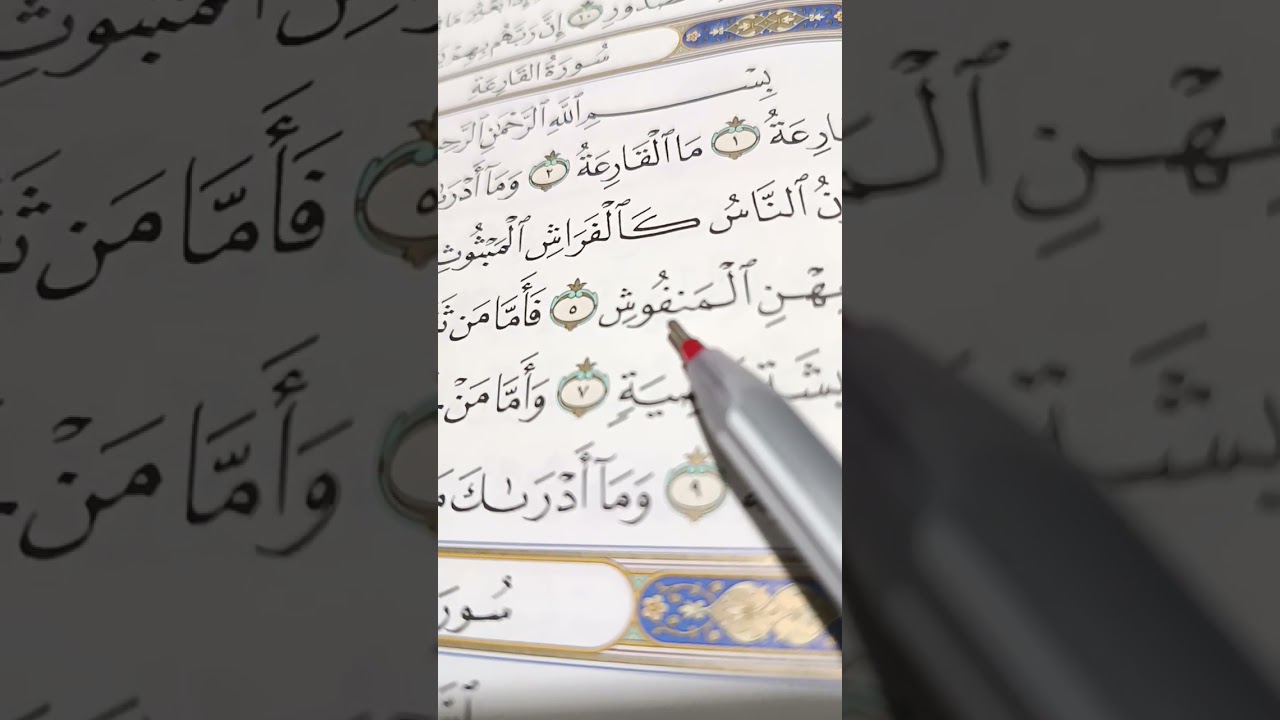 صُّدُورِ ١٠ إِنَّ رَبَّهُم بِهِمْ
سُورَةُ القَارِعَةِ
بِسْمِ ٱللَّهِ ٱلرَّحْمَٰنِ ٱلرَّحِ
ارِعَةُ ١ مَا ٱلْقَارِعَةُ ٢ وَمَآ أَدْرَىٰ
نُ ٱلنَّاسُ كَٱلْفَرَاشِ ٱلْمَبْثُوثِ
هْنِ ٱلْمَنفُوشِ ٥ فَأَمَّا مَن ثَ
يشَةٍ ٧ وَأَمَّا مَنْ
٩ وَمَآ أَدْرَىٰكَ مَ
سُورَ